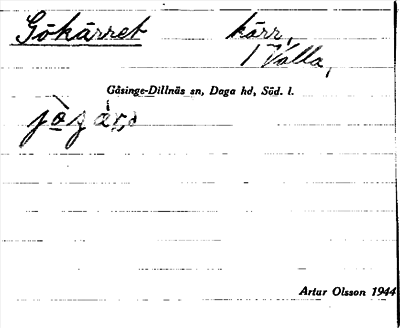 Gökärret kärr,
Valla,
Gåsinge-Dillnäs sn, Daga hd, Söd. l.
Artur Olsson 1944